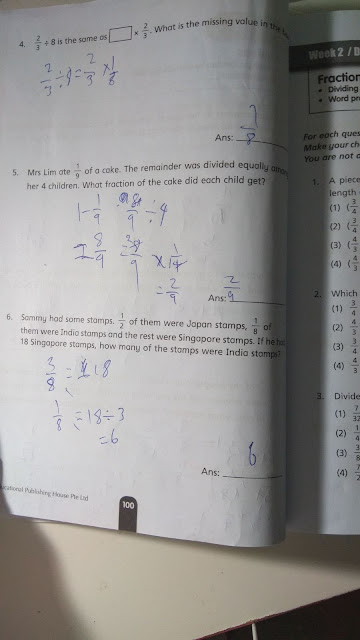 4. 2/3 ÷ 8 is the same as □ × 2/3. What is the missing value in the
2/3 ÷ 8 = 2/3 × 1/8
Ans: 1/8
5. Mrs Lim ate 1/9 of a cake. The remainder was divided equally among
her 4 children. What fraction of the cake did each child get?
1 - 1/9
8/9 ÷ 4
= 8/9
× 1/4
= 2/9
Ans: 2/9
6. Sammy had some stamps. 1/2 of them were Japan stamps, 1/8 of
them were India stamps and the rest were Singapore stamps. If he had
18 Singapore stamps, how many of the stamps were India stamps?
3/8 = 18
1/8 = 18 ÷ 3
= 6
Ans: 6
ucational Publishing House Pte Ltd
100
Week 2 / D
Fraction
• Dividing
• Word pr
For each ques
Make your ch
You are not a
1. A piece
length
(1) (3/4
(2) (3/4
(3) (4/3
(4) (4/3
2. Which
(1)
(2)
(3)
(4)
3. Divide
(1) 7/32
(2) 1/4
(3) 3/8
(4)